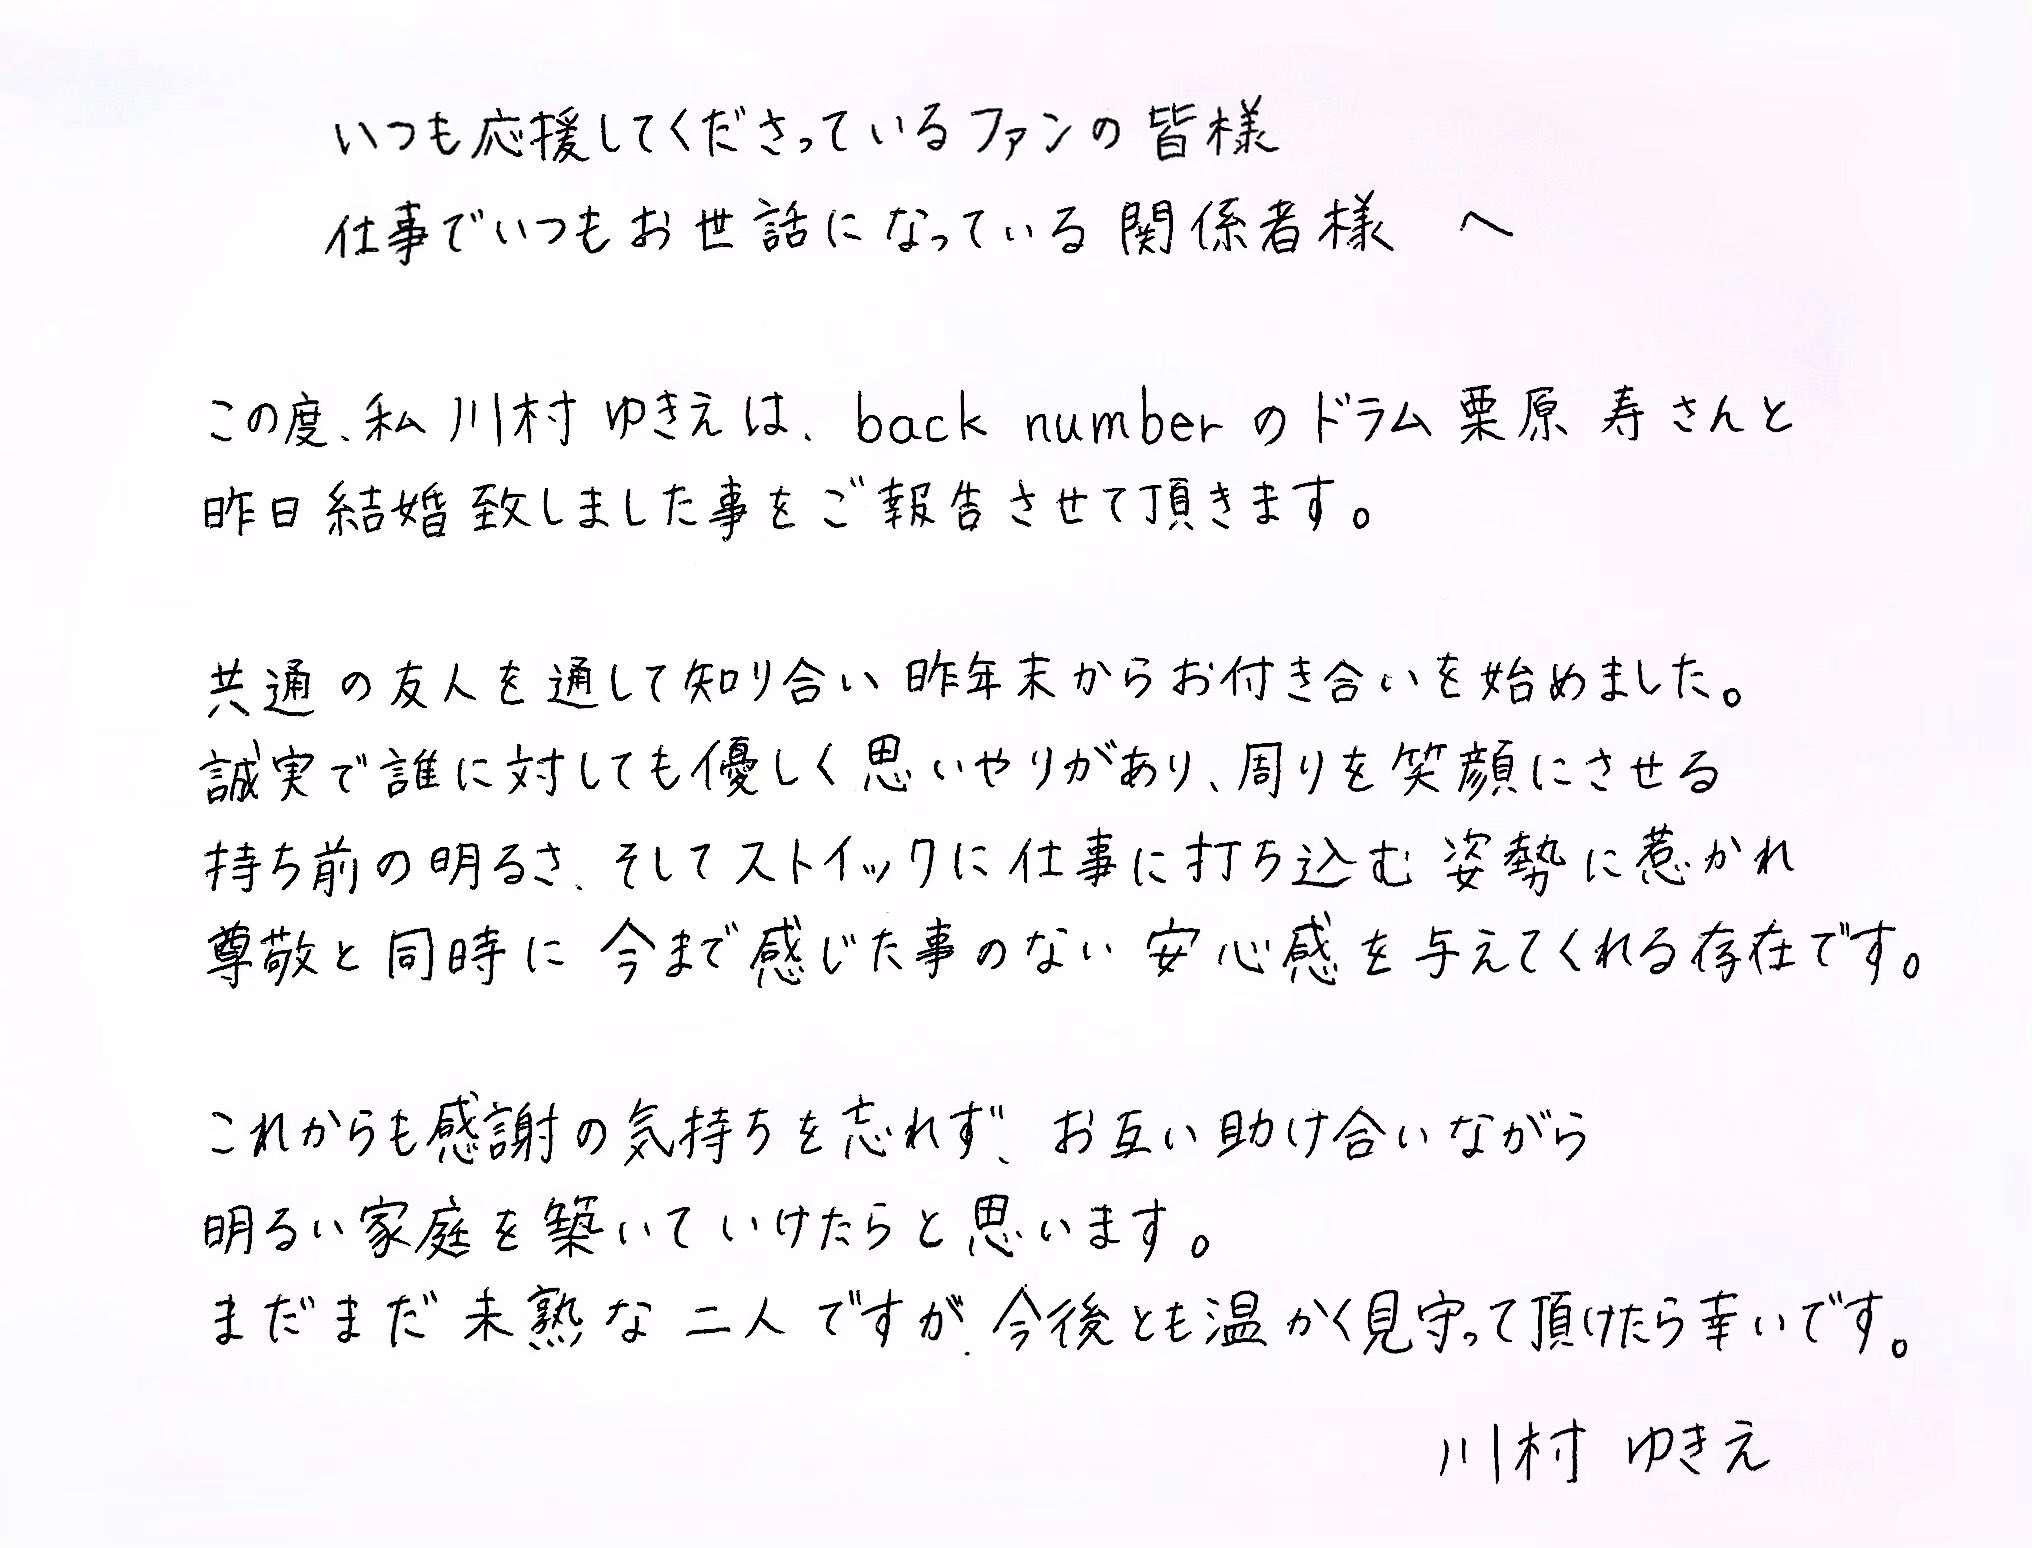 いつも応援してくださっているファンの皆様
仕事でいつもお世話になっている関係者様　へ
この度、私 川村 ゆきえは、back numberのドラム 栗原 寿さんと
昨日結婚致しました事をご報告させて頂きます。
共通の友人を通して知り合い昨年末からお付き合いを始めました。
誠実で誰に対しても優しく思いやりがあり、周りを笑顔にさせる
持ち前の明るさ、そしてストイックに仕事に打ち込む姿勢に惹かれ
尊敬と同時に今まで感じた事のない安心感を与えてくれる存在です。
これからも感謝の気持ちを忘れず、お互い助け合いながら
明るい家庭を築いていけたらと思います。
まだまだ未熟な二人ですが、今後とも温かく見守って頂けたら幸いです。
川村 ゆきえ